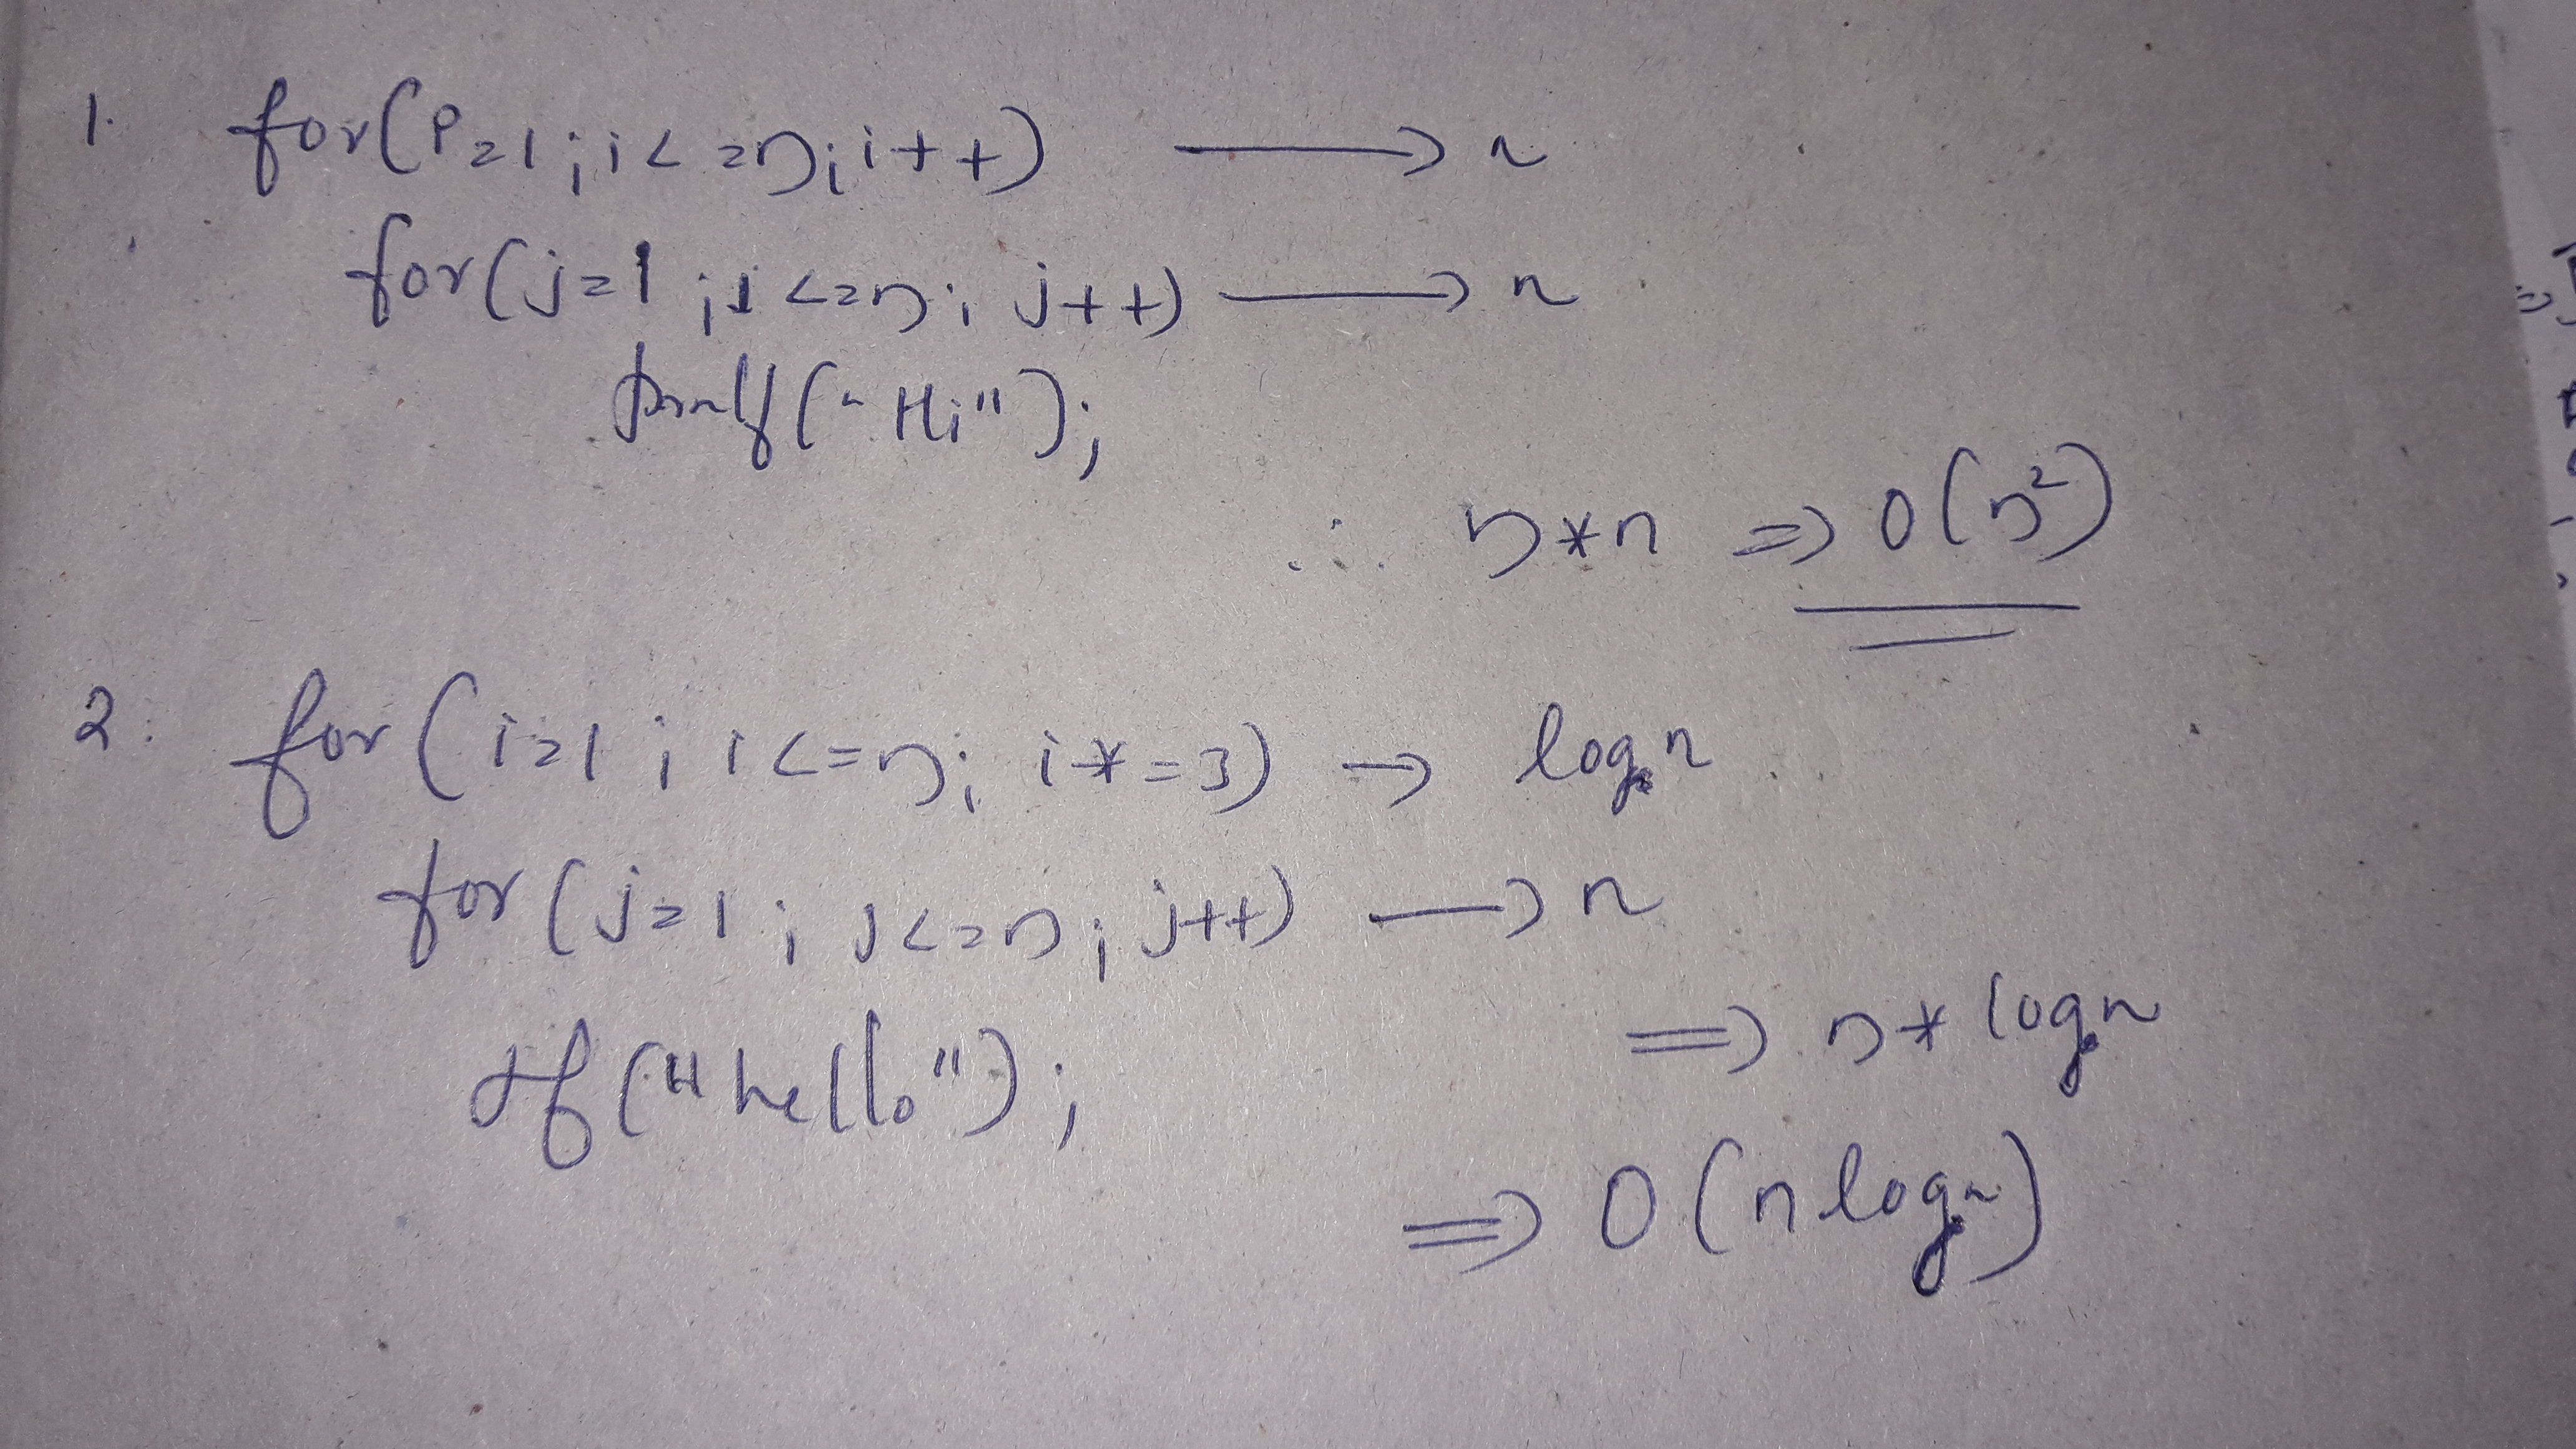 1. for(i=1;i<=n;i++) → n
for(j=1;j<=n;j++) → n
pmf("Hi");
∴ n*n ⇒ O(n²)
2. for(i=1;i<=n;i*=3) → log n
for(j=1;j<=n;j++) → n
pf("Hello");
⇒ n*log n
⇒ O(n log n)